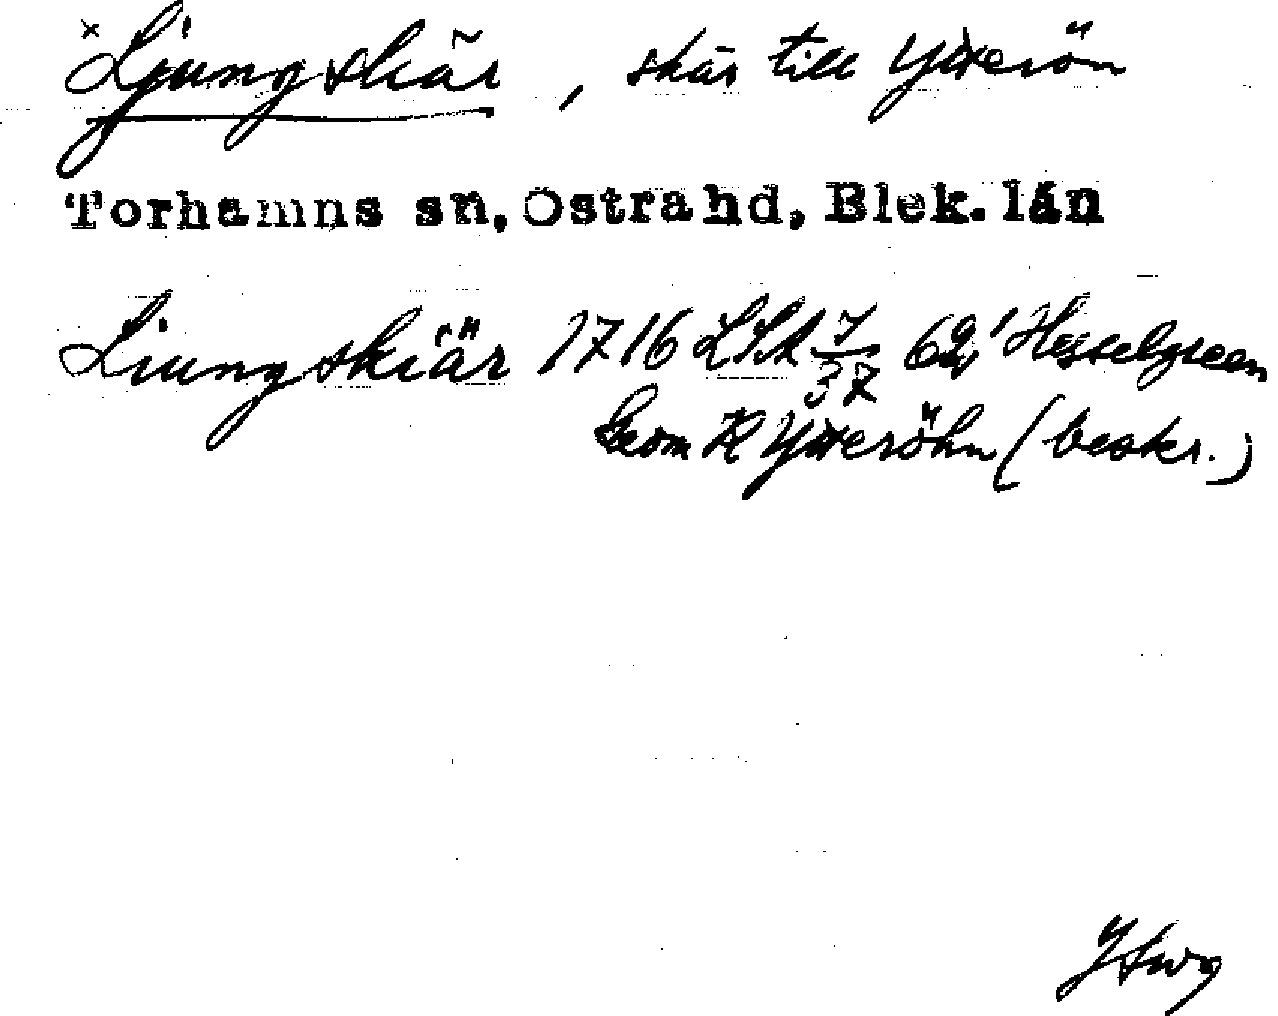 × Ljungskär, skär till Ytterön
Torhamns sn, Östra hd, Blek. län
Liungskiär 1716 LSA 7/37 62, Hesselgreen
Geom K Ytteröhn (beskr.)